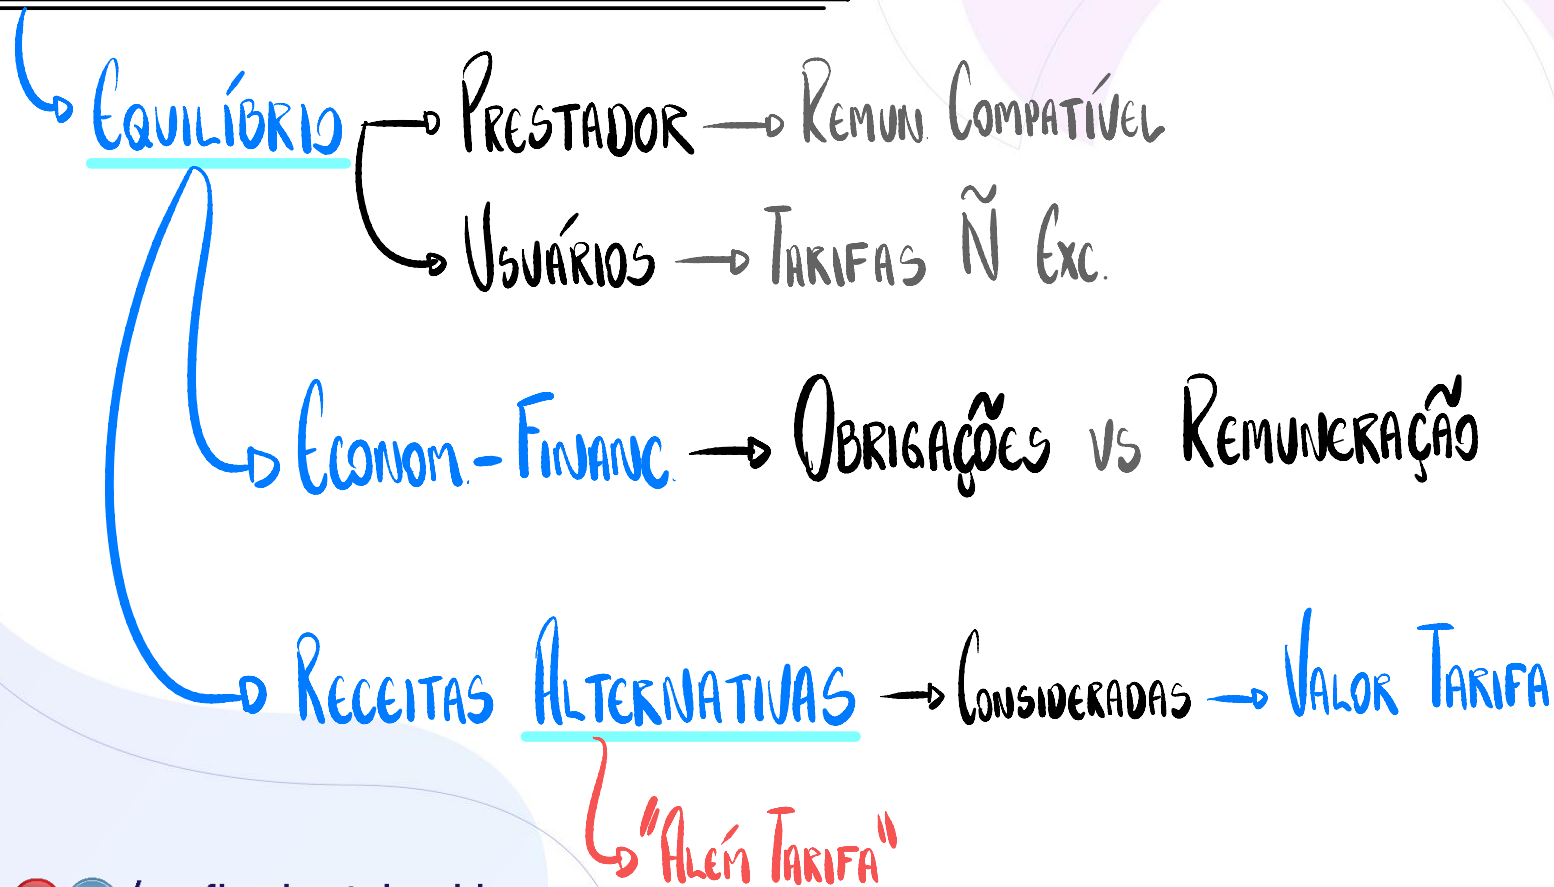 EQUILÍBRIO → PRESTADOR → REMUN. COMPATÍVEL
USUÁRIOS → TARIFAS Ñ EXC.
ECONOM.-FINANC. → OBRIGAÇÕES VS REMUNERAÇÃO
RECEITAS ALTERNATIVAS → CONSIDERADAS → VALOR TARIFA
"ALÉM TARIFA"